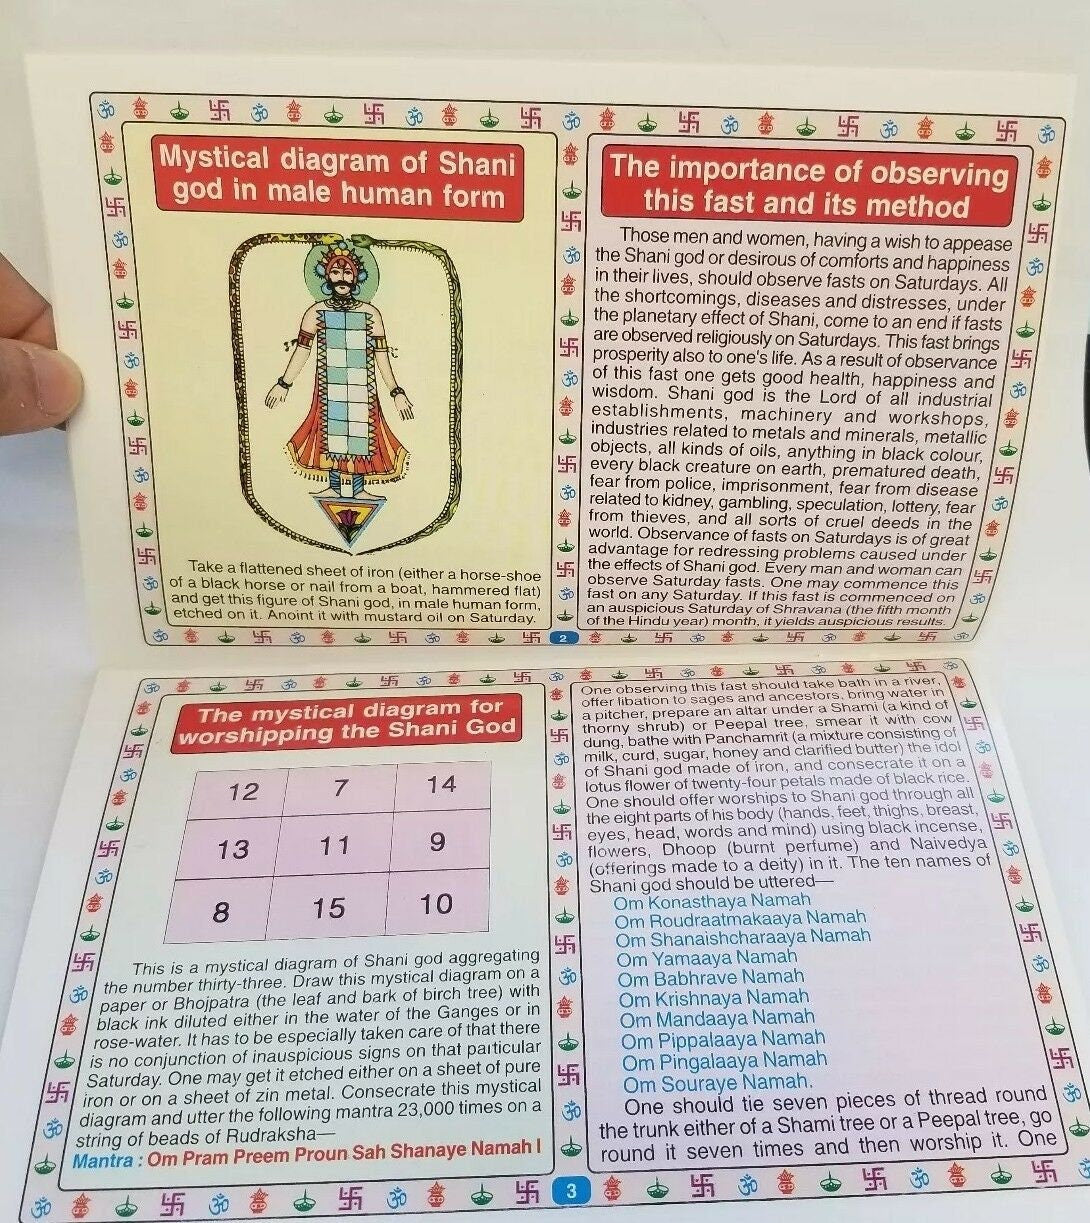 Mystical diagram of Shani
god in male human form
Take a flattened sheet of iron (either a horse-shoe
of a black horse or nail from a boat, hammered flat)
and get this figure of Shani god, in male human form,
etched on it. Anoint it with mustard oil on Saturday.
The importance of observing
this fast and its method
Those men and women, having a wish to appease
the Shani god or desirous of comforts and happiness
in their lives, should observe fasts on Saturdays. All
the shortcomings, diseases and distresses, under
the planetary effect of Shani, come to an end if fasts
are observed religiously on Saturdays. This fast brings
prosperity also to one's life. As a result of observance
of this fast one gets good health, happiness and
wisdom. Shani god is the Lord of all industrial
establishments, machinery and workshops,
industries related to metals and minerals, metallic
objects, all kinds of oils, anything in black colour,
every black creature on earth, prematured death,
fear from police, imprisonment, fear from disease
related to kidney, gambling, speculation, lottery, fear
from thieves, and all sorts of cruel deeds in the
world. Observance of fasts on Saturdays is of great
advantage for redressing problems caused under
the effects of Shani god. Every man and woman can
observe Saturday fasts. One may commence this
fast on any Saturday. If this fast is commenced on
an auspicious Saturday of Shravana (the fifth month
of the Hindu year) month, it yields auspicious results.
2
The mystical diagram for
worshipping the Shani God
12 7 14
13 11 9
8 15 10
This is a mystical diagram of Shani god aggregating
the number thirty-three. Draw this mystical diagram on a
paper or Bhojpatra (the leaf and bark of birch tree) with
black ink diluted either in the water of the Ganges or in
rose-water. It has to be especially taken care of that there
is no conjunction of inauspicious signs on that particular
Saturday. One may get it etched either on a sheet of pure
iron or on a sheet of zin metal. Consecrate this mystical
diagram and utter the following mantra 23,000 times on a
string of beads of Rudraksha—
Mantra : Om Pram Preem Proun Sah Shanaye Namah I
One observing this fast should take bath in a river,
offer libation to sages and ancestors, bring water in
a pitcher, prepare an altar under a Shami (a kind of
thorny shrub) or Peepal tree, smear it with cow
dung, bathe with Panchamrit (a mixture consisting of
milk, curd, sugar, honey and clarified butter) the idol
of Shani god made of iron, and consecrate it on a
lotus flower of twenty-four petals made of black rice.
One should offer worships to Shani god through all
the eight parts of his body (hands, feet, thighs, breast,
eyes, head, words and mind) using black incense,
flowers, Dhoop (burnt perfume) and Naivedya
(offerings made to a deity) in it. The ten names of
Shani god should be uttered—
Om Konasthaya Namah
Om Roudraatmakaaya Namah
Om Shanaishcharaaya Namah
Om Yamaaya Namah
Om Babhrave Namah
Om Krishnaya Namah
Om Mandaaya Namah
Om Pippalaaya Namah
Om Pingalaaya Namah
Om Souraye Namah.
One should tie seven pieces of thread round
the trunk either of a Shami tree or a Peepal tree, go
round it seven times and then worship it. One
3